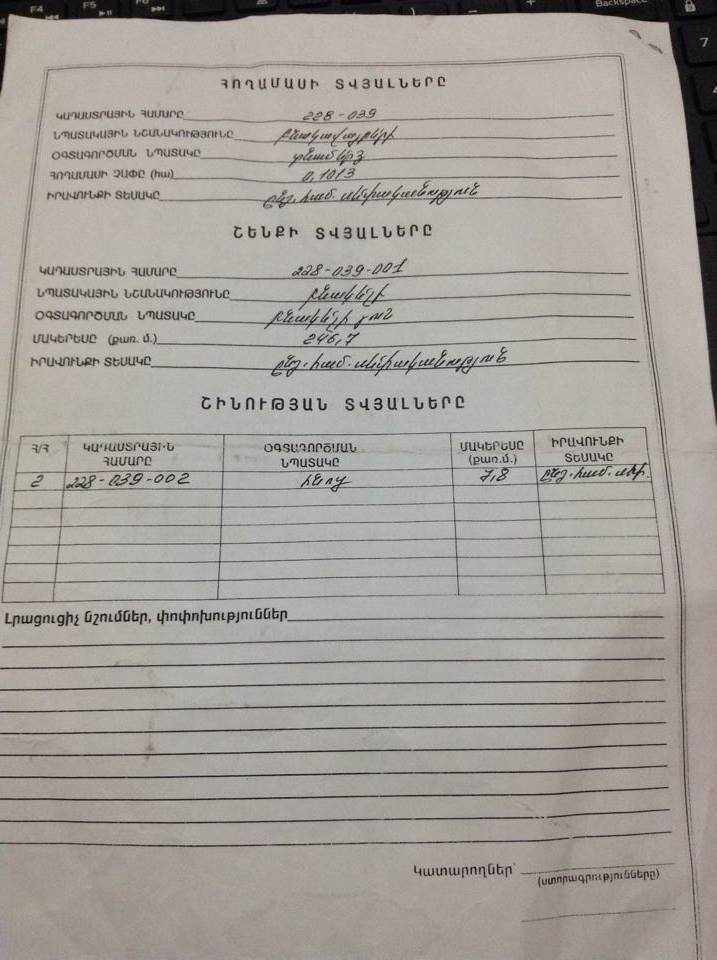 F4 F5 F6 Backspace
7
ՀՈՂԱՄԱՍԻ ՏՎՅԱԼՆԵՐԸ
ԿԱԴԱՍՏՐԱՅԻՆ ՀԱՄԱՐԸ 228-039
ՆՊԱՏԱԿԱՅԻՆ ՆՇԱՆԱԿՈՒԹՅՈՒՆԸ բնակավայրերի
ՕԳՏԱԳՈՐԾՄԱՆ ՆՊԱՏԱԿԸ տնամերձ
ՀՈՂԱՄԱՍԻ ՉԱՓԸ (հա) 0,1013
ԻՐԱՎՈՒՆՔԻ ՏԵՍԱԿԸ ընդ. համ. սեփականություն
ՇԵՆՔԻ ՏՎՅԱԼՆԵՐԸ
ԿԱԴԱՍՏՐԱՅԻՆ ՀԱՄԱՐԸ 228-039-001
ՆՊԱՏԱԿԱՅԻՆ ՆՇԱՆԱԿՈՒԹՅՈՒՆԸ բնակելի
ՕԳՏԱԳՈՐԾՄԱՆ ՆՊԱՏԱԿԸ բնակելի տուն
ՄԱԿԵՐԵՍԸ (քառ. մ.) 246,7
ԻՐԱՎՈՒՆՔԻ ՏԵՍԱԿԸ ընդ. համ. սեփականություն
ՇԻՆՈՒԹՅԱՆ ՏՎՅԱԼՆԵՐԸ
Հ/Հ ԿԱԴԱՍՏՐԱՅԻՆ ՀԱՄԱՐԸ ՕԳՏԱԳՈՐԾՄԱՆ ՆՊԱՏԱԿԸ ՄԱԿԵՐԵՍԸ (քառ.մ.) ԻՐԱՎՈՒՆՔԻ ՏԵՍԱԿԸ
2 228-039-002 հնոց 7,8 ընդ. համ. սեփ.
Լրացուցիչ նշումներ, փոփոխություններ
Կատարողներ՝
(ստորագրությունները)